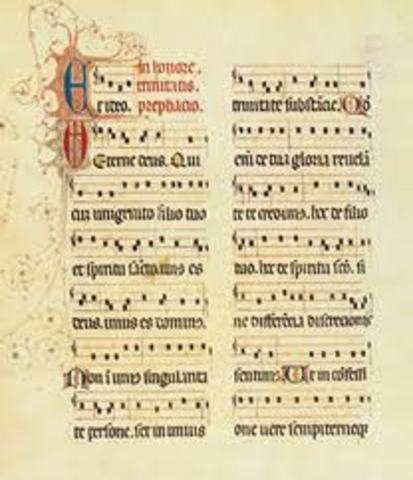 In honore.
trinitatis.
Et ideo. prephacio.
Eterne deus. Qui
cuz unigenito filio tuo
et spiritu sancto unus es
deus. unus es dominus.
Non i unius singularita
te persone. set in unius
trinitate substancie. Qd
eni de tua gloria revela
te credimus. hoc de filio
tuo. hoc de spiritu sco. si
ne differentia discrecionis
sentimus. Ut in cofessi
one vere sempiterneqz